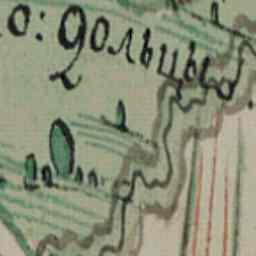 о: Дольцы